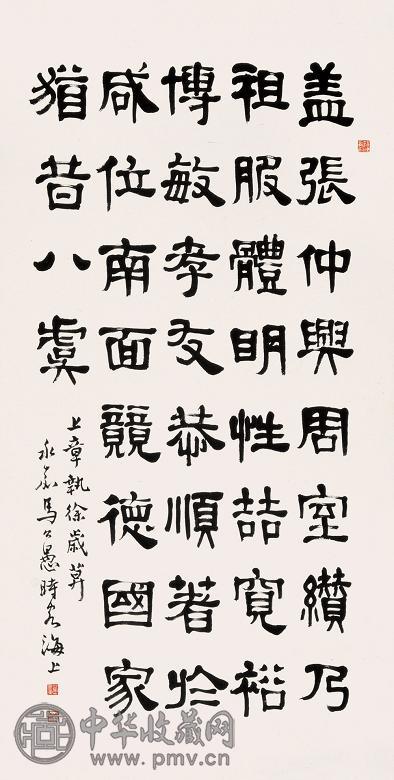 盖張仲興周室纘乃
祖服體明性喆寬裕
博敏孝友恭順著於
咸位南面競德國家
猶昔八虞
上章執徐歲莫
永嘉馬公愚時客海上
中华收藏网
www.pmv.cn